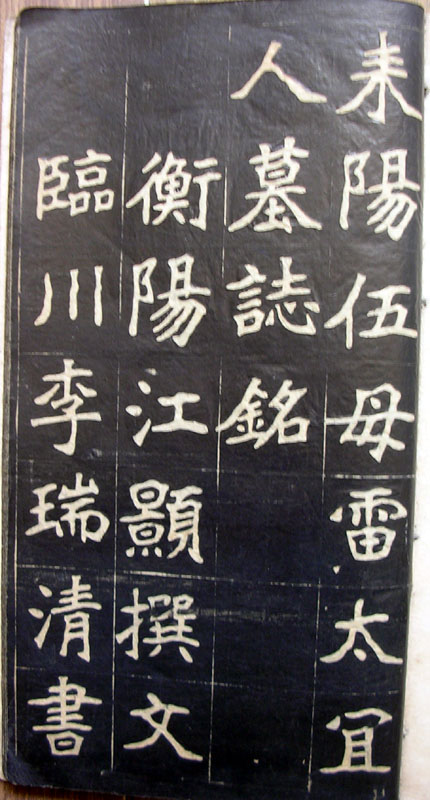 耒陽伍母雷太冝
人墓誌銘
衡陽江顥撰文
臨川李瑞清書